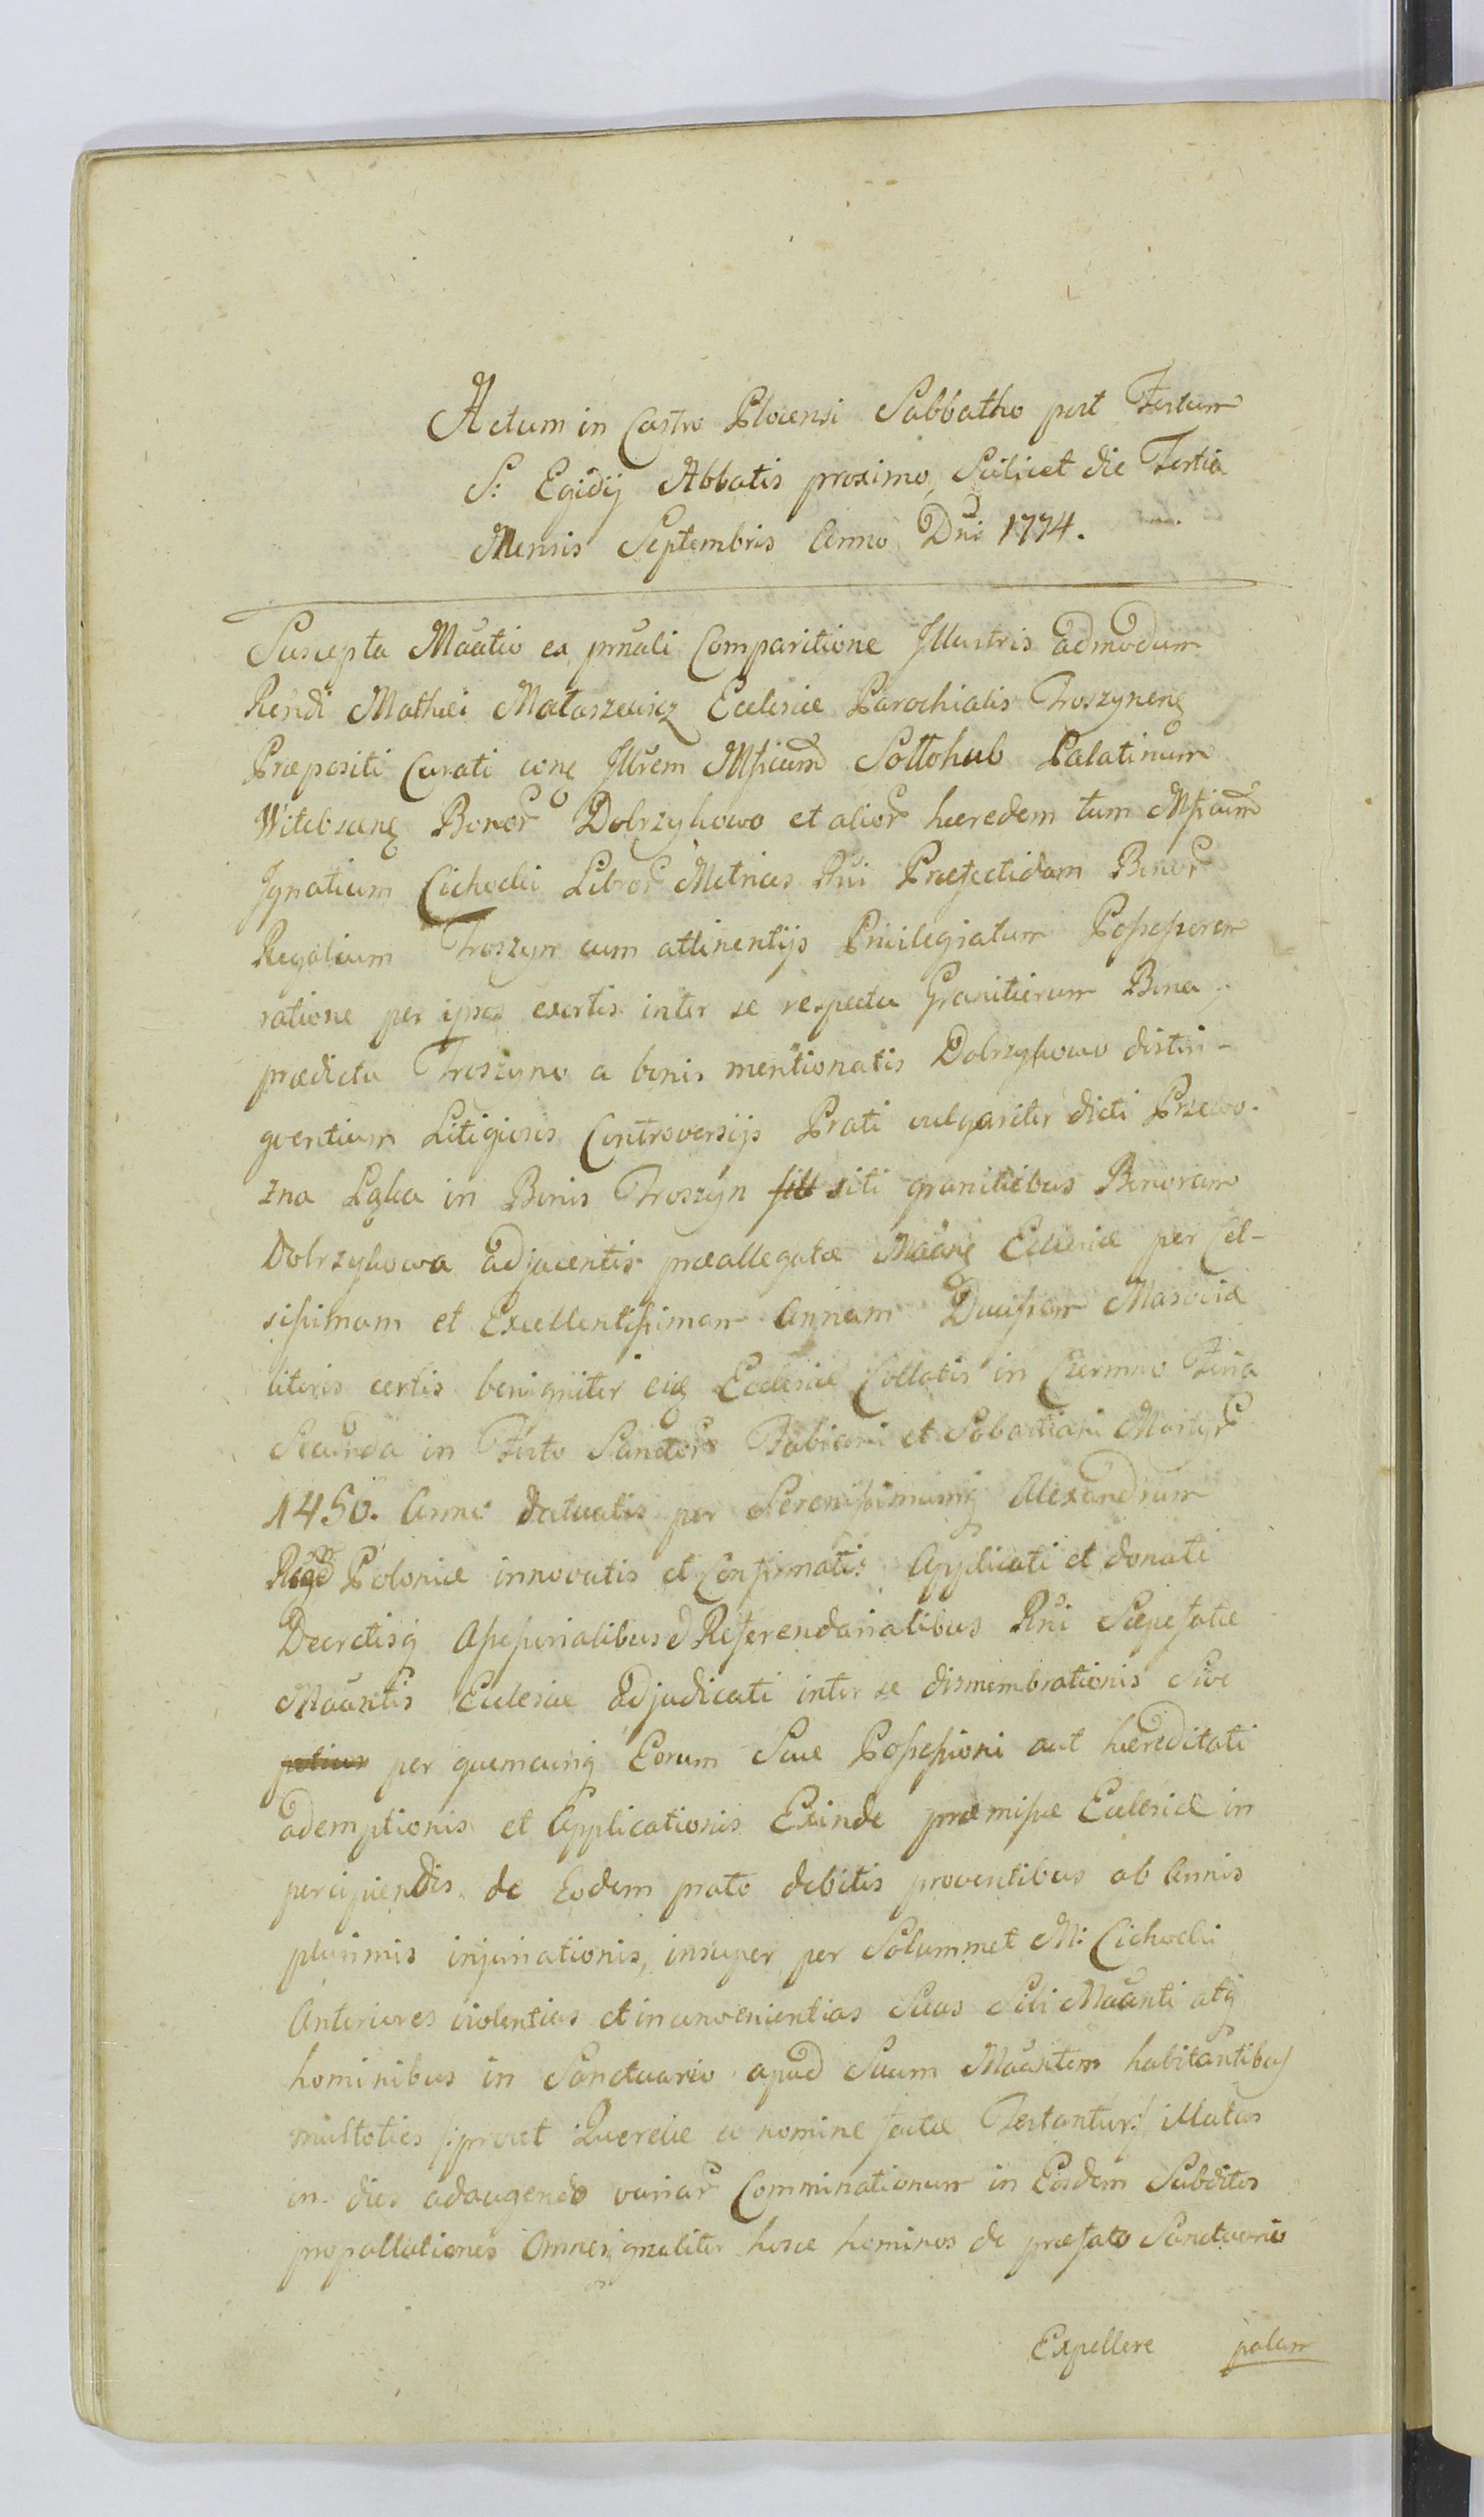 Actum in Castro Plocensi Sabbatho post Festum
S: Egidij Abbatis proximo, Scilicet die Tertia
Mensis Septembris Anno Dni 1774.
Suscepta Maãtio ea prnali Comparitione Illustris admodum
Rendi Mathei Mataszewicz Ecclesiæ Parochialis Troszynenẹ
Præpositi Curati conẹ Illrem Mficum Sollohub Palatinum
Witebscenẹ Bonor Dobrzykowo et alior hæredem tum Mficum
Ignatium Cichocki Libror Metrices Rni Præfectidam Bonor
Regalium Troszyn cum attinentijs Privilegiatum Possessorem
ratione per ipsos exortis inter se respectu Granitierum Bona
prædicta Troszyno a bonis mentionatis Dobrzykowo distin-
gventium Litigiosis Controversijs Prati vulgariter dicti Przewo-
zna Łąka in Bonis Troszyn siti granitiebus Bonorum
Dobrzykowa adjacentis præallegatæ Maãnẹ Ecclesiæ per Cel-
sissimam et Excellentissimam Annam Ducissam Masoviæ
literis certis benigniter eiq Ecclesiæ Collatis in Czermno Feria
Secunda in Festo Sanctor Fabiani et Sebastiani Martyr
1450. Anno datuatis per Serenissimumq Alexandrum
Regem Poloniæ innovatis et Confirmatis Applicati et donati
Decretisq Assessorialibus et Referendarialibus Rni Sæpefatæ
Maãntis Ecclesiæ adjudicati inter se dismembrationis Sive
potius per quemcunq Eorum Suæ Possessioni aut hæreditati
ademptionis et Applicationis Exinde præmissæ Ecclesiæ in
percipiendis de Eodem prato debitis proventibus ab Annis
plurimis injuriationis, insuper per Solummet M: Cichocki
Anteriores violentias et inconvenientias Suas Sibi Maãnti atq
hominibus in Sanctuario apud Suum Maãntem habitantibus
multoties /:prout Querelæ eo nomine factæ Testantur:/ illatas
in dies adaugendo variar Comminationum in Eosdem Subditos
propallationes Omnesq gnaliter hosce homines de præfato Sanctuario
Expellere palam